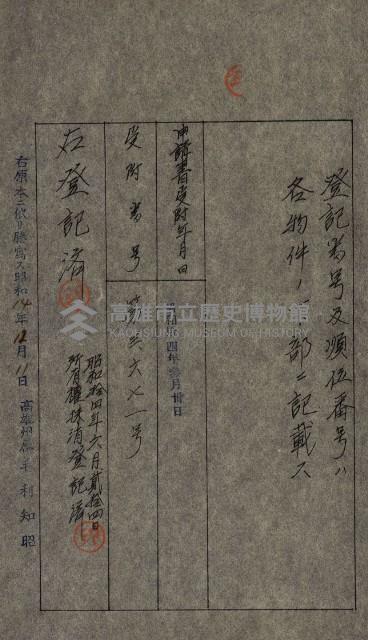 登記番号及順位番号ハ
各物件ノ一部ニ記載ス
申請書受附年月日
昭和拾四年參月廿日
受附番号
第三六七一号
右登記済
昭和拾四年六月貳拾四日
所有權抹消登記済
右原本ニ依リ謄寫ス昭和14年12月11日 高雄州属 毛利知昭
高雄市立歷史博物館
KAOHSIUNG MUSEUM OF HISTORY